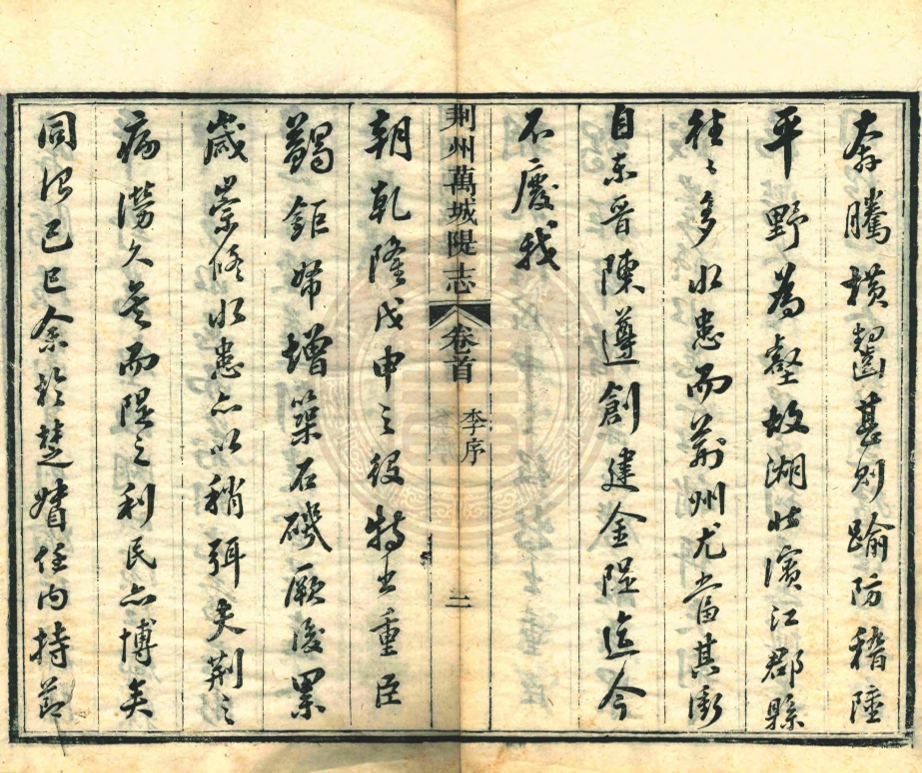 奔騰橫齧甚則踰防稽陸
平野為壑故湖北濱江郡縣
往〻多水患而荊州尤當其衝
自東晉陳遵創建金隄迄今
不廢我
荆州萬城隄志 卷首 李序 二
朝乾隆戊申之役特出重臣
蠲鉅帑增築石磯厥後累
歲崇修水患亦以稍弭夫荆之
病潦久矣而隄之利民亦博矣
同治己巳余於楚督任内持節